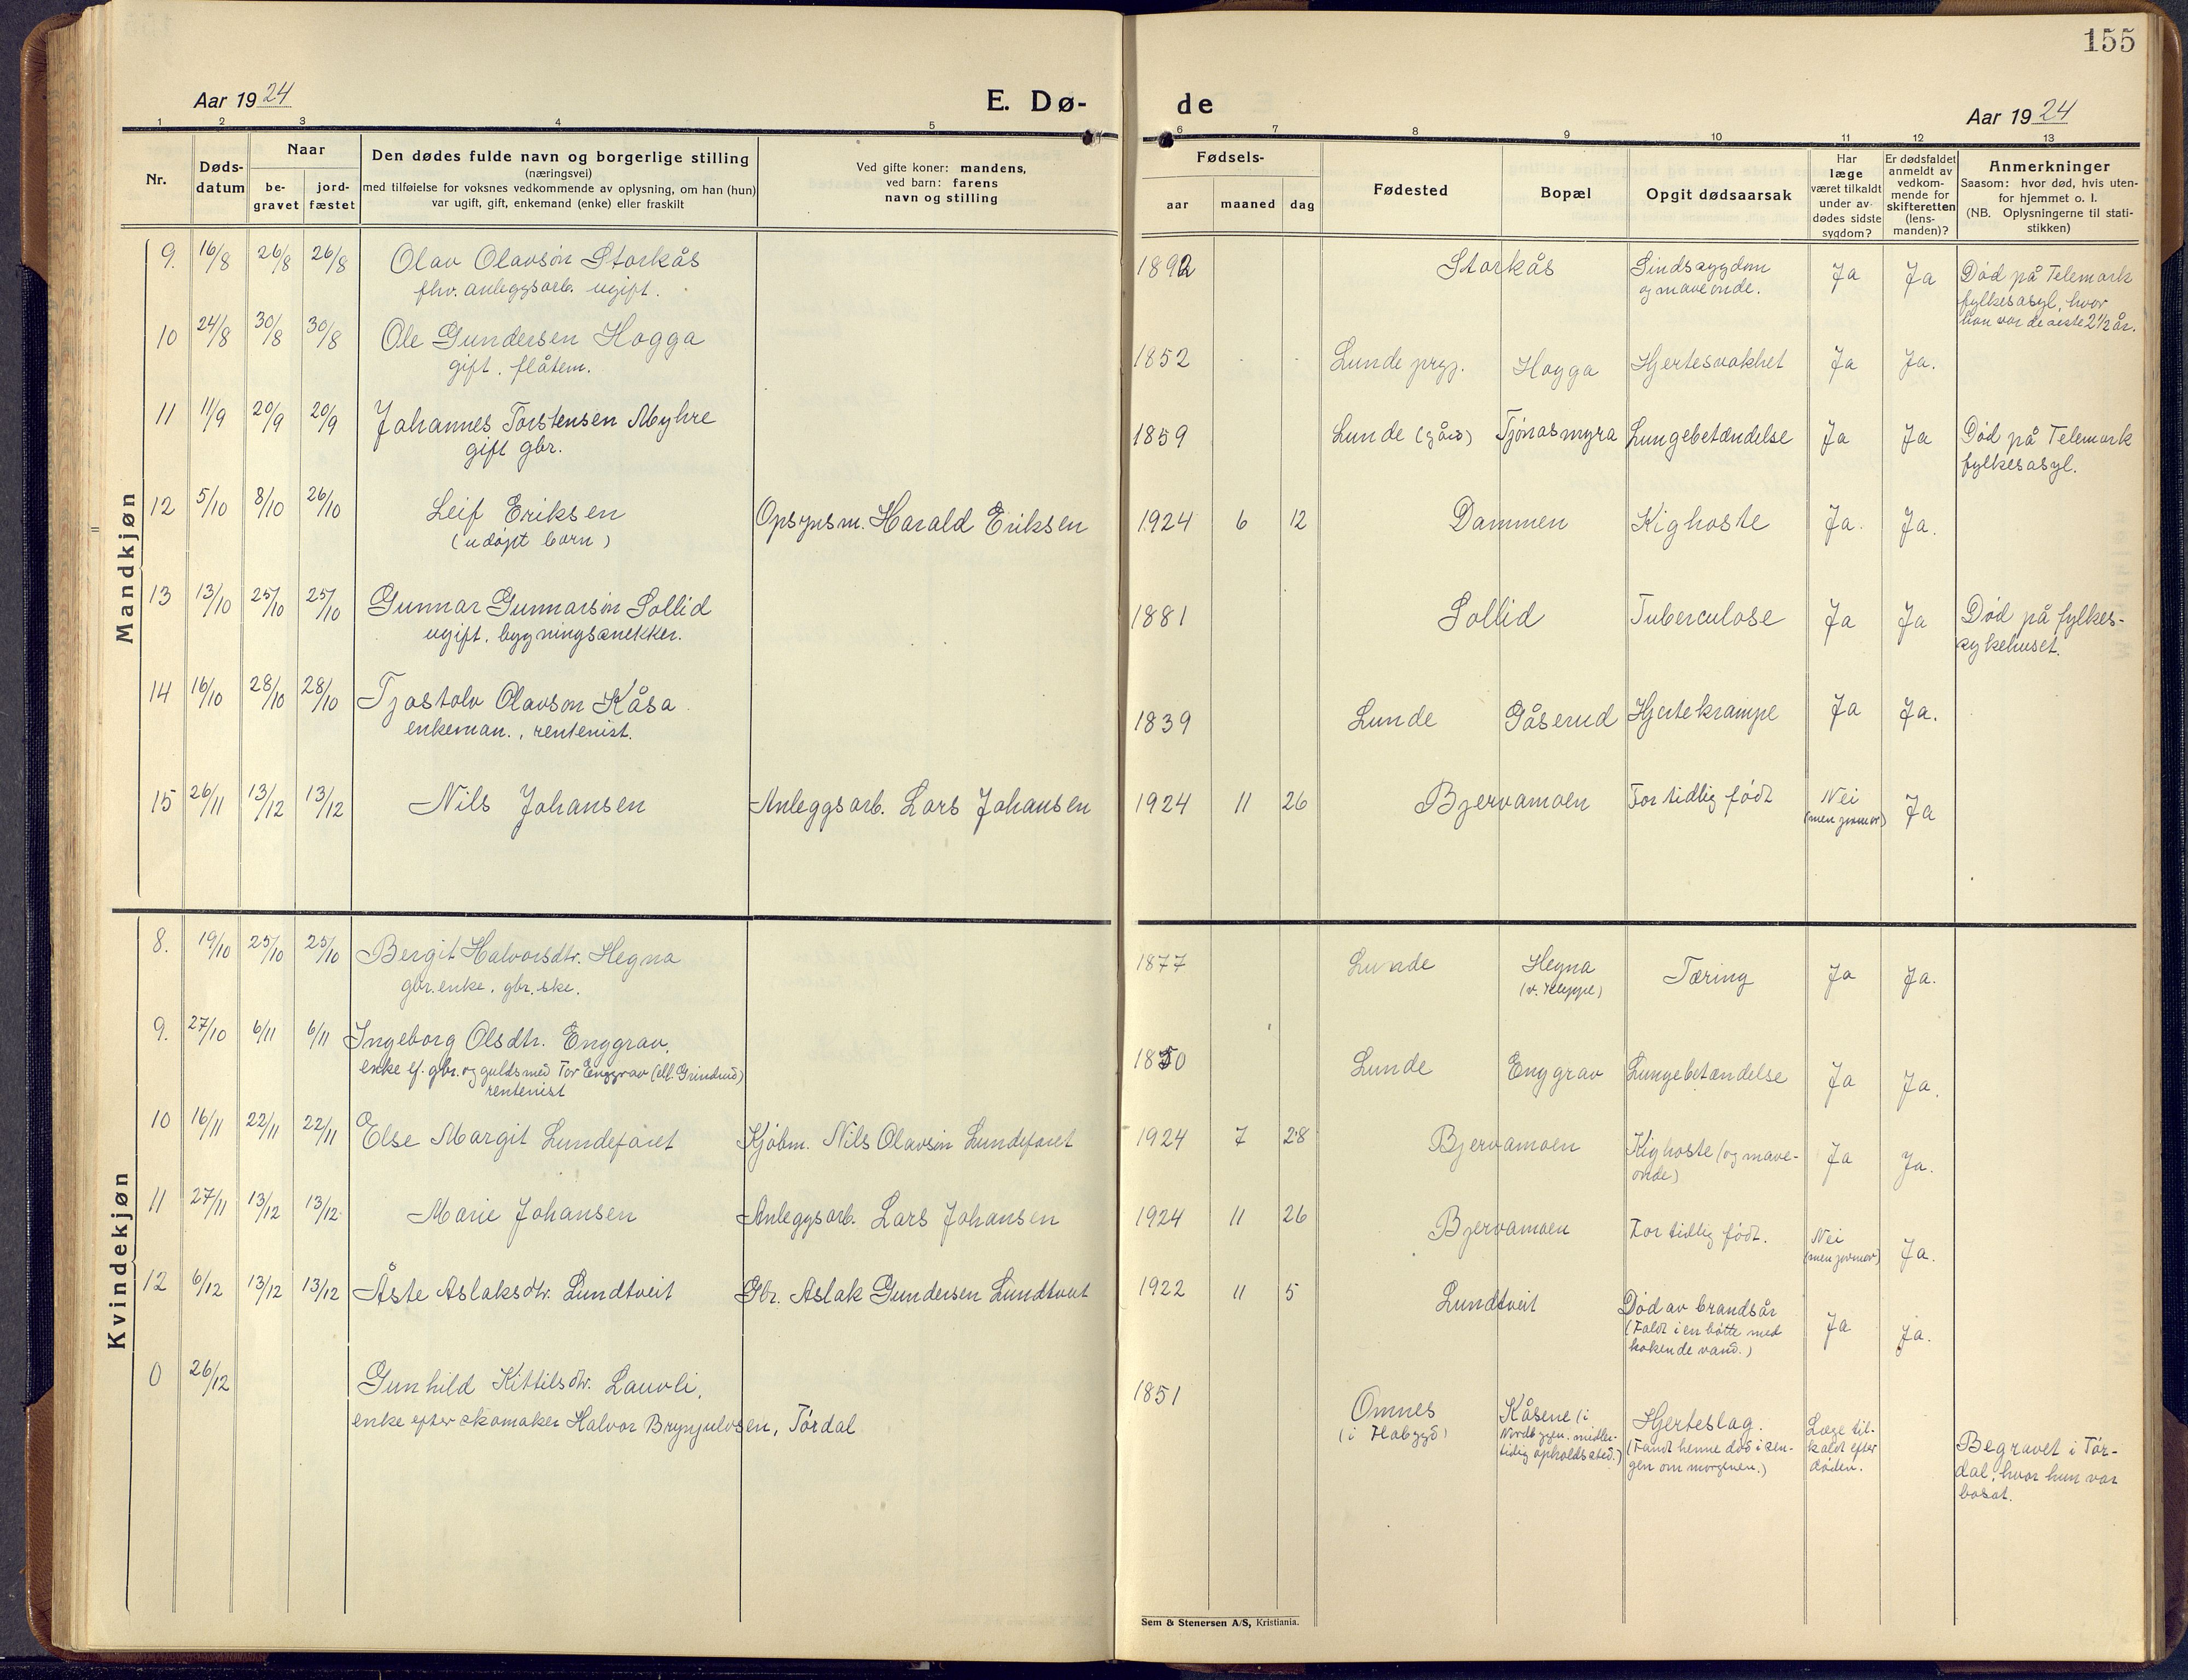 155
Aar 1924 E. Dø-
de Aar 1924
1 2 3 4 5
6 7 8 9 10 11 12 13
Nr.
Døds-
datum
Naar
be-
gravet
jord-
fæstet
Den dødes fulde navn og borgerlige stilling
(næringsvei)
med tilføielse for voksnes vedkommende av oplysning, om han (hun)
var ugift, gift, enkemand (enke) eller fraskilt
Ved gifte koner: mandens,
ved barn: farens
navn og stilling
Fødsels-
aar maaned dag
Fødested
Bopæl
Opgit dødsaarsak
Har
læge
været tilkaldt
under av-
dødes sidste
sygdom?
Er dødsfaldet
anmeldt av
vedkom-
mende for
skifteretten
(lens-
manden)?
Anmerkninger
Saasom: hvor død, hvis uten-
for hjemmet o. l.
(NB. Oplysningerne til stati-
stikken)
Mandkjøn
9. 16/8 26/8 26/8 Olav Olavson Storkås
fhv. anleggsarb. ugift.
1892 Storkås Sindssygdom
og maveonde.
Ja Ja Død på Telemark
fylkesasyl, hvor
han var de siste 2 1/2 år.
10 24/8 30/8 30/8 Ole Gundersen Hogga
gift. fløtem.
1852 - - Lunde prgj. Hogga Hjertesvakhet Ja Ja.
11 11/9 20/9 20/9 Johannes Torstensen Myhre
gift gbr.
1859 Lunde (gård) Tjønasmyra Lungebetændelse Ja Ja Død på Telemark
fylkesasyl.
12 5/10 8/10 26/10 Leif Eriksen
(udøpt barn)
Opsynsm. Harald Eriksen
1924 6 12 Dammen Kighoste Ja. Ja.
13 13/10 25/10 25/10 Gunnar Gunnarson Sollid
ugift, bygningssnekker.
1881 Sollid Tuberculose Ja Ja Død på fylkes-
sykehuset.
14 16/10 28/10 28/10 Tjostolv Olavson Kåsa
enkeman., rentenist.
1839 Lunde Gåserud Hjertekrampe Ja Ja.
15 26/11 13/12 13/12 Nils Johansen
Anleggsarb. Lars Johansen
1924 11 26 Bjervamoen For tidlig født Nei
(men jormor)
Ja
Kvindekjøn
8. 19/10 25/10 25/10 Bergit Halvorsdtr. Hegna
gbr. enke. gbr.ske.
1877 Lunde Hegna
(v. Kleppe)
Tæring Ja Ja.
9. 27/10 6/11 6/11 Ingeborg Olsdtr. Enggrav,
enke ef. gbr. og guldsmed Tor Enggrav (ell. Grindrud)
rentenist
1850 Lunde Enggrav Lungebetændelse Ja Ja.
10 16/11 22/11 22/11 Else Margit Lundefaret
Kjøbm. Nils Olavson Lundefaret
1924 7 28 Bjervamoen Kighoste (og mave-
onde)
Ja Ja.
11 27/11 13/12 13/12 Marie Johansen
Anleggsarb. Lars Johansen
1924 11 26 Bjervamoen For tidlig født. Nei
(men jormor)
Ja.
12 6/12 13/12 13/12 Åste Aslaksdtr. Lundtveit
Gbr. Aslak Gundersen Lundtveit
1922 11 5 Lundtveit Død av brandsår
(Faldt i en bøtte med
kokende vand.)
Ja Ja.
0 26/12 Gunhild Kittilsdtr. Lauvli,
enke efter skomaker Halvor Brynjulvsen, Tørdal
1851 Omnes
(i Flabygd)
Kåsene (i
Nordbygn. midler-
tidig opholdssted.)
Hjerteslag.
(Fandt henne død i sen-
gen om morgenen.)
Læge til-
kaldt efter
døden.
Begravet i Tør-
dal, hvor hun var
bosat.
Sem & Stenersen A/S, Kristiania.